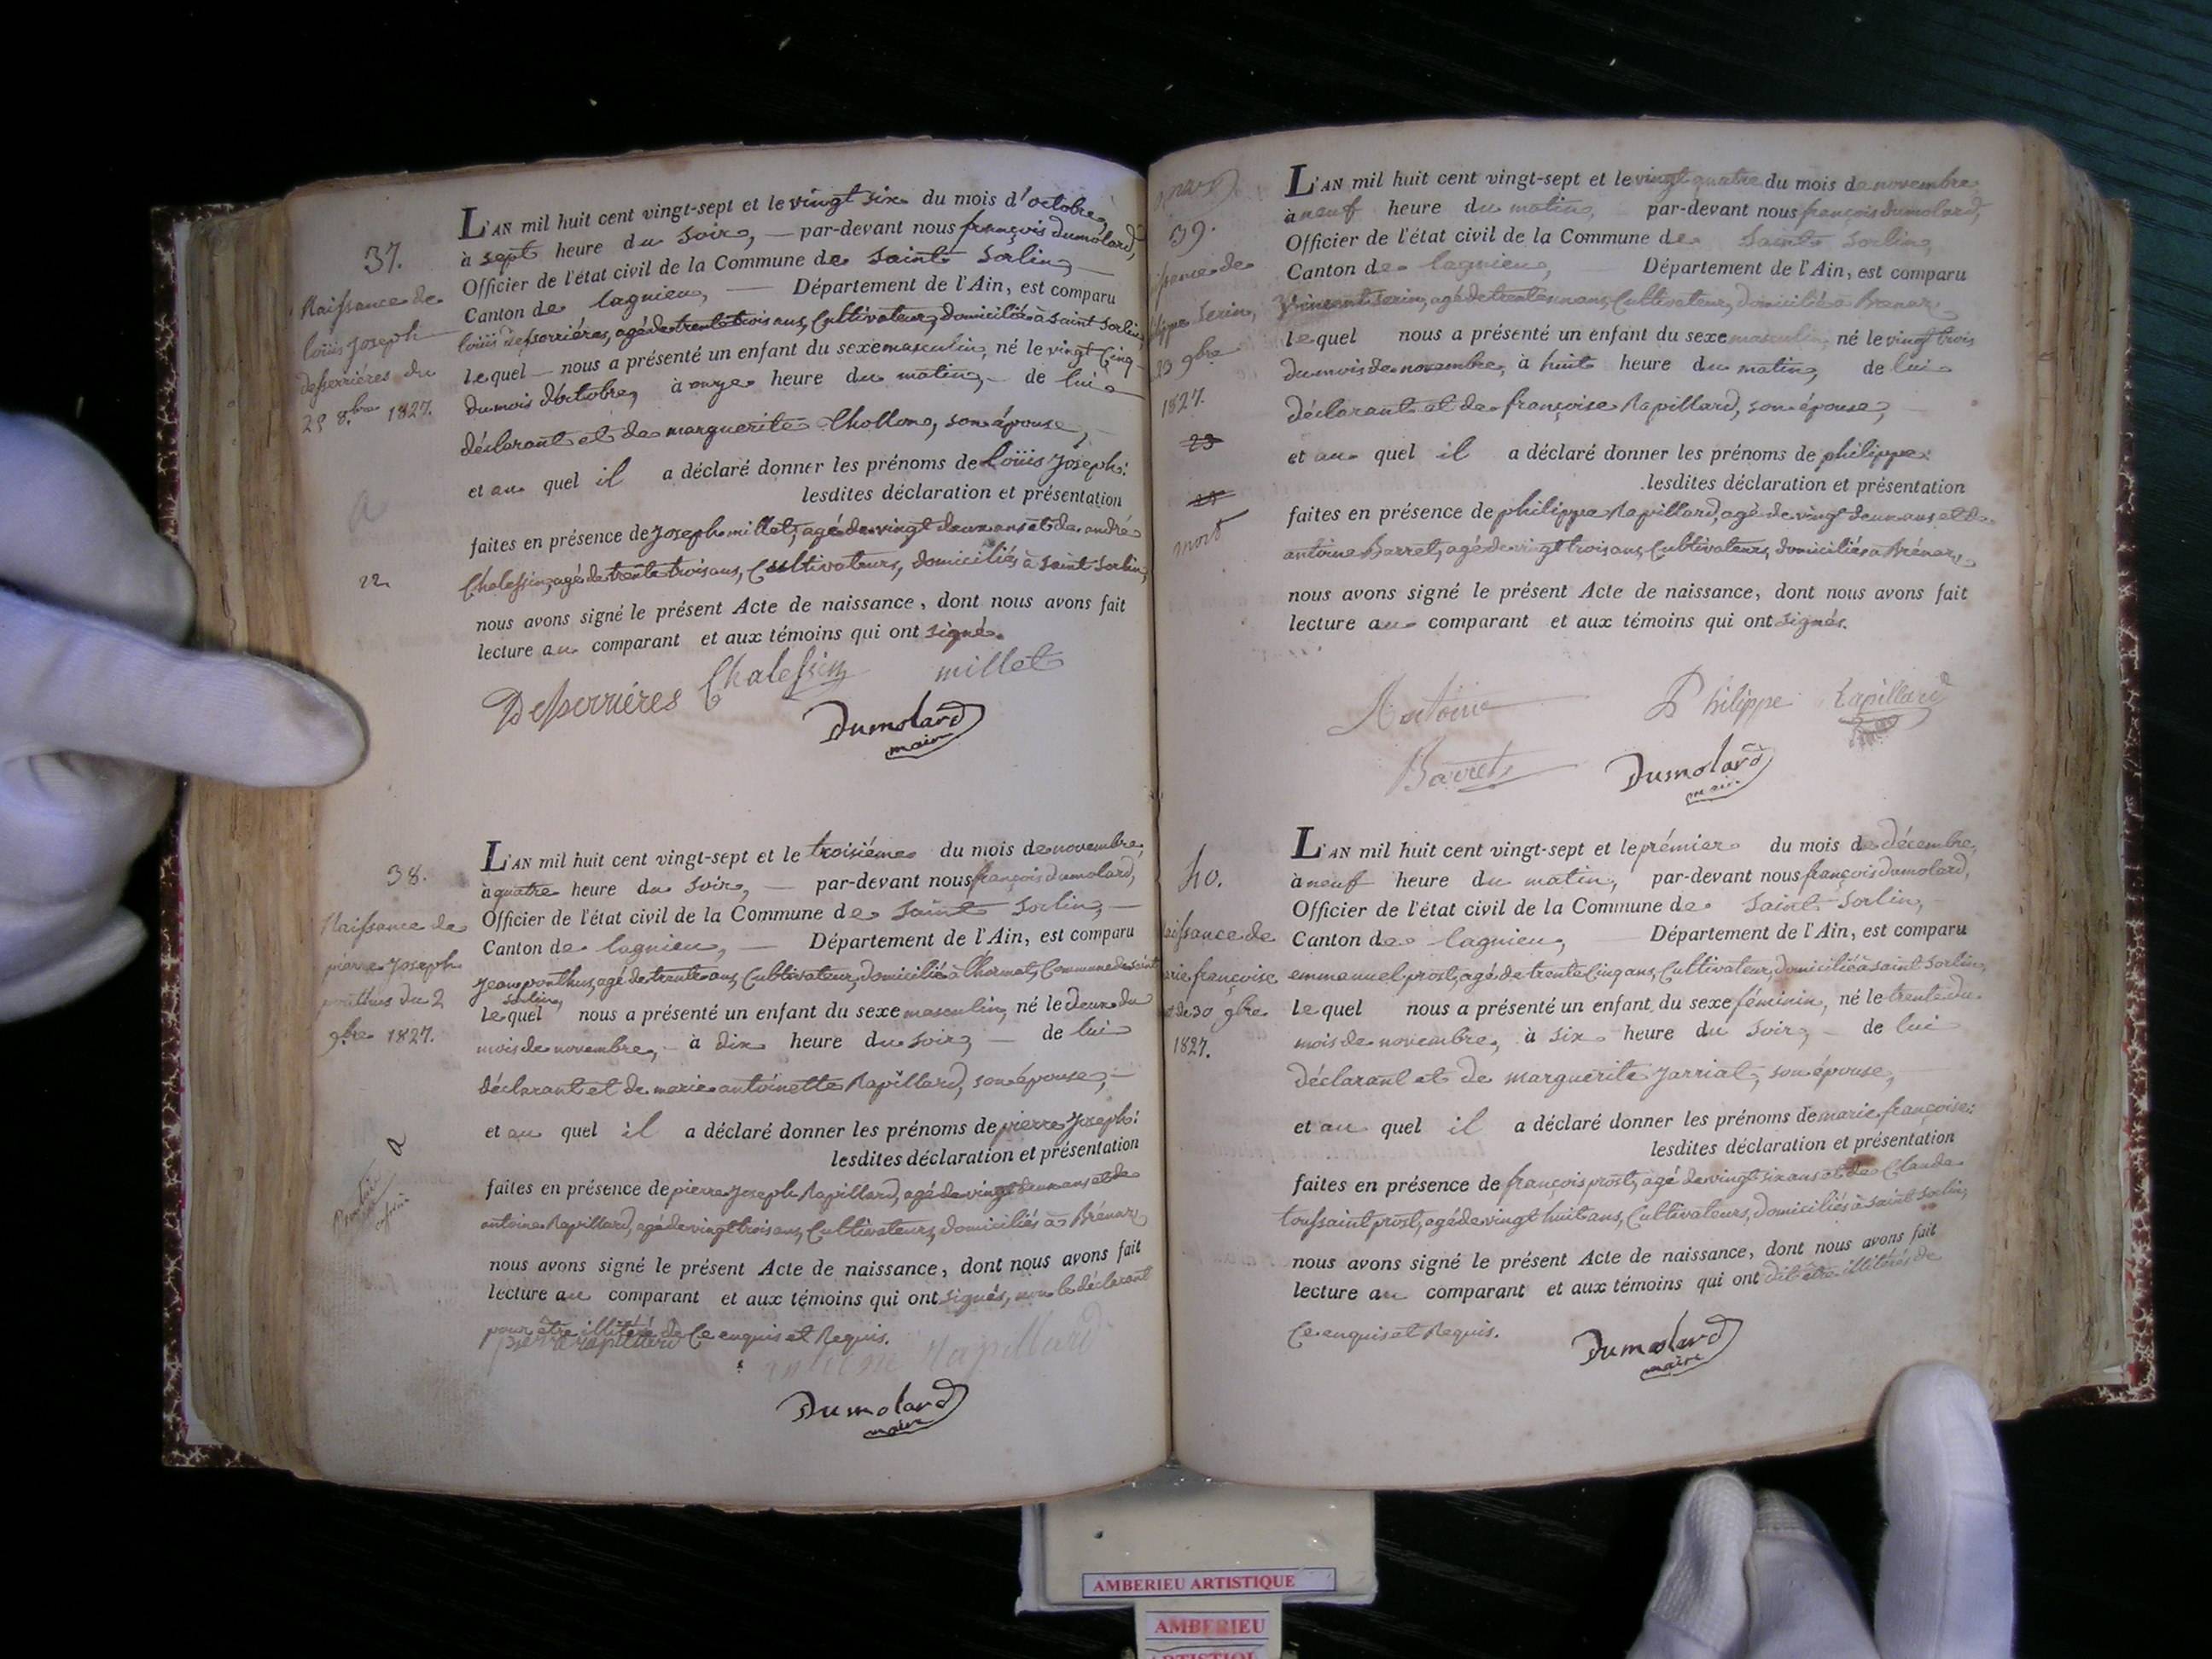 37.
Naissance de
louis Joseph
desserriéres du
25 8.bre 1827.
22
L'AN mil huit cent vingt-sept et le vingt six du mois d'octobre,
à sept heure du soir, — par-devant nous françois dumolard,
Officier de l'état civil de la Commune de saint Sorlin, —
Canton de lagnieu, — Département de l'Ain, est comparu
louis desserriéres, agé de trente trois ans, Cultivateur, domicilié à saint Sorlin,
Lequel — nous a présenté un enfant du sexe masculin, né le vingt Cinq
du mois d'octobre, à onze heure du matin, — de lui
déclarant et de marguerite Chollom, son épouse,
et au quel il a déclaré donner les prénoms de Louis Joseph:
lesdites déclaration et présentation
faites en présence de Joseph millet, agé de vingt deux ans et de andré
Chalessin, agé de trente trois ans, Cultivateurs, domiciliés à saint Sorlin,
nous avons signé le présent Acte de naissance, dont nous avons fait
lecture au comparant et aux témoins qui ont signé.
Desserriéres Chalessin millet
Dumolard
maire
38.
Naissance de
pierre Joseph
ponthus du 2
9.bre 1827.
L'AN mil huit cent vingt-sept et le troisiéme du mois de novembre,
à quatre heure du soir, — par-devant nous françois dumolard,
Officier de l'état civil de la Commune de saint Sorlin, —
Canton de lagnieu, — Département de l'Ain, est comparu
Jean ponthus, agé de trente ans, Cultivateur, domicilié à Chormat, Commune de saint
Sorlin,
Lequel nous a présenté un enfant du sexe masculin, né le deux du
mois de novembre, — à dix heure du soir, — de lui
déclarant et de marie antoinette Rapillard, son épouse, —
et au quel il a déclaré donner les prénoms de pierre Joseph:
lesdites déclaration et présentation
faites en présence de pierre Joseph Rapillard, agé de vingt deux ans et de
antoine Rapillard, agé de vingt trois ans, Cultivateurs, domiciliés à Brénaz,
nous avons signé le présent Acte de naissance, dont nous avons fait
lecture au comparant et aux témoins qui ont signés, non le déclarant
pour être illitéré de Ce enquis et Requis.
pierre rapillard
antoine Rapillard
Dumolard
maire
39.
Serin,
23 9bre
1827.
23
mort
L'AN mil huit cent vingt-sept et le vingt quatre du mois de novembre
à neuf heure du matin, par-devant nous françois dumolard,
Officier de l'état civil de la Commune de Saint Sorlin,
Canton de lagnieu, Département de l'Ain, est comparu
Vincent Serin, agé de trente un ans, Cultivateur, domicilié à Brenaz,
Lequel nous a présenté un enfant du sexe masculin, né le vingt trois
du mois de novembre, à huit heure du matin, de lui
déclarant et de françoise Rapillard, son épouse,
et au quel il a déclaré donner les prénoms de philippe:
lesdites déclaration et présentation
faites en présence de philippe Rapillard, agé de vingt deux ans et de
antoine Barret, agé de vingt trois ans, Cultivateurs, domiciliés à Brénaz,
nous avons signé le présent Acte de naissance, dont nous avons fait
lecture au comparant et aux témoins qui ont signés.
Antoine Philippe Rapillard
Barret Dumolard
maire
40.
naissance de
françoise
du 30 9bre
1827.
L'AN mil huit cent vingt-sept et le prémier du mois de décembre,
à neuf heure du matin, par-devant nous françois dumolard,
Officier de l'état civil de la Commune de Saint Sorlin,
Canton de lagnieu, Département de l'Ain, est comparu
emmanuel prost, agé de trente Cinq ans, Cultivateur, domicilié à saint Sorlin,
Lequel nous a présenté un enfant du sexe féminin, né le trente du
mois de novembre, à six heure du soir, — de lui
déclarant et de marguerite Jarriat, son épouse,
et au quel il a déclaré donner les prénoms de marie françoise:
lesdites déclaration et présentation
faites en présence de françois prost, agé de vingt six ans et de Claude
toussaint prost, agé de vingt huit ans, Cultivateurs, domiciliés à saint Sorlin,
nous avons signé le présent Acte de naissance, dont nous avons fait
lecture au comparant et aux témoins qui ont dit être illitérés de
Ce enquis et Requis.
Dumolard
maire
AMBERIEU ARTISTIQUE
AMBERIEU
ARTISTIQUE